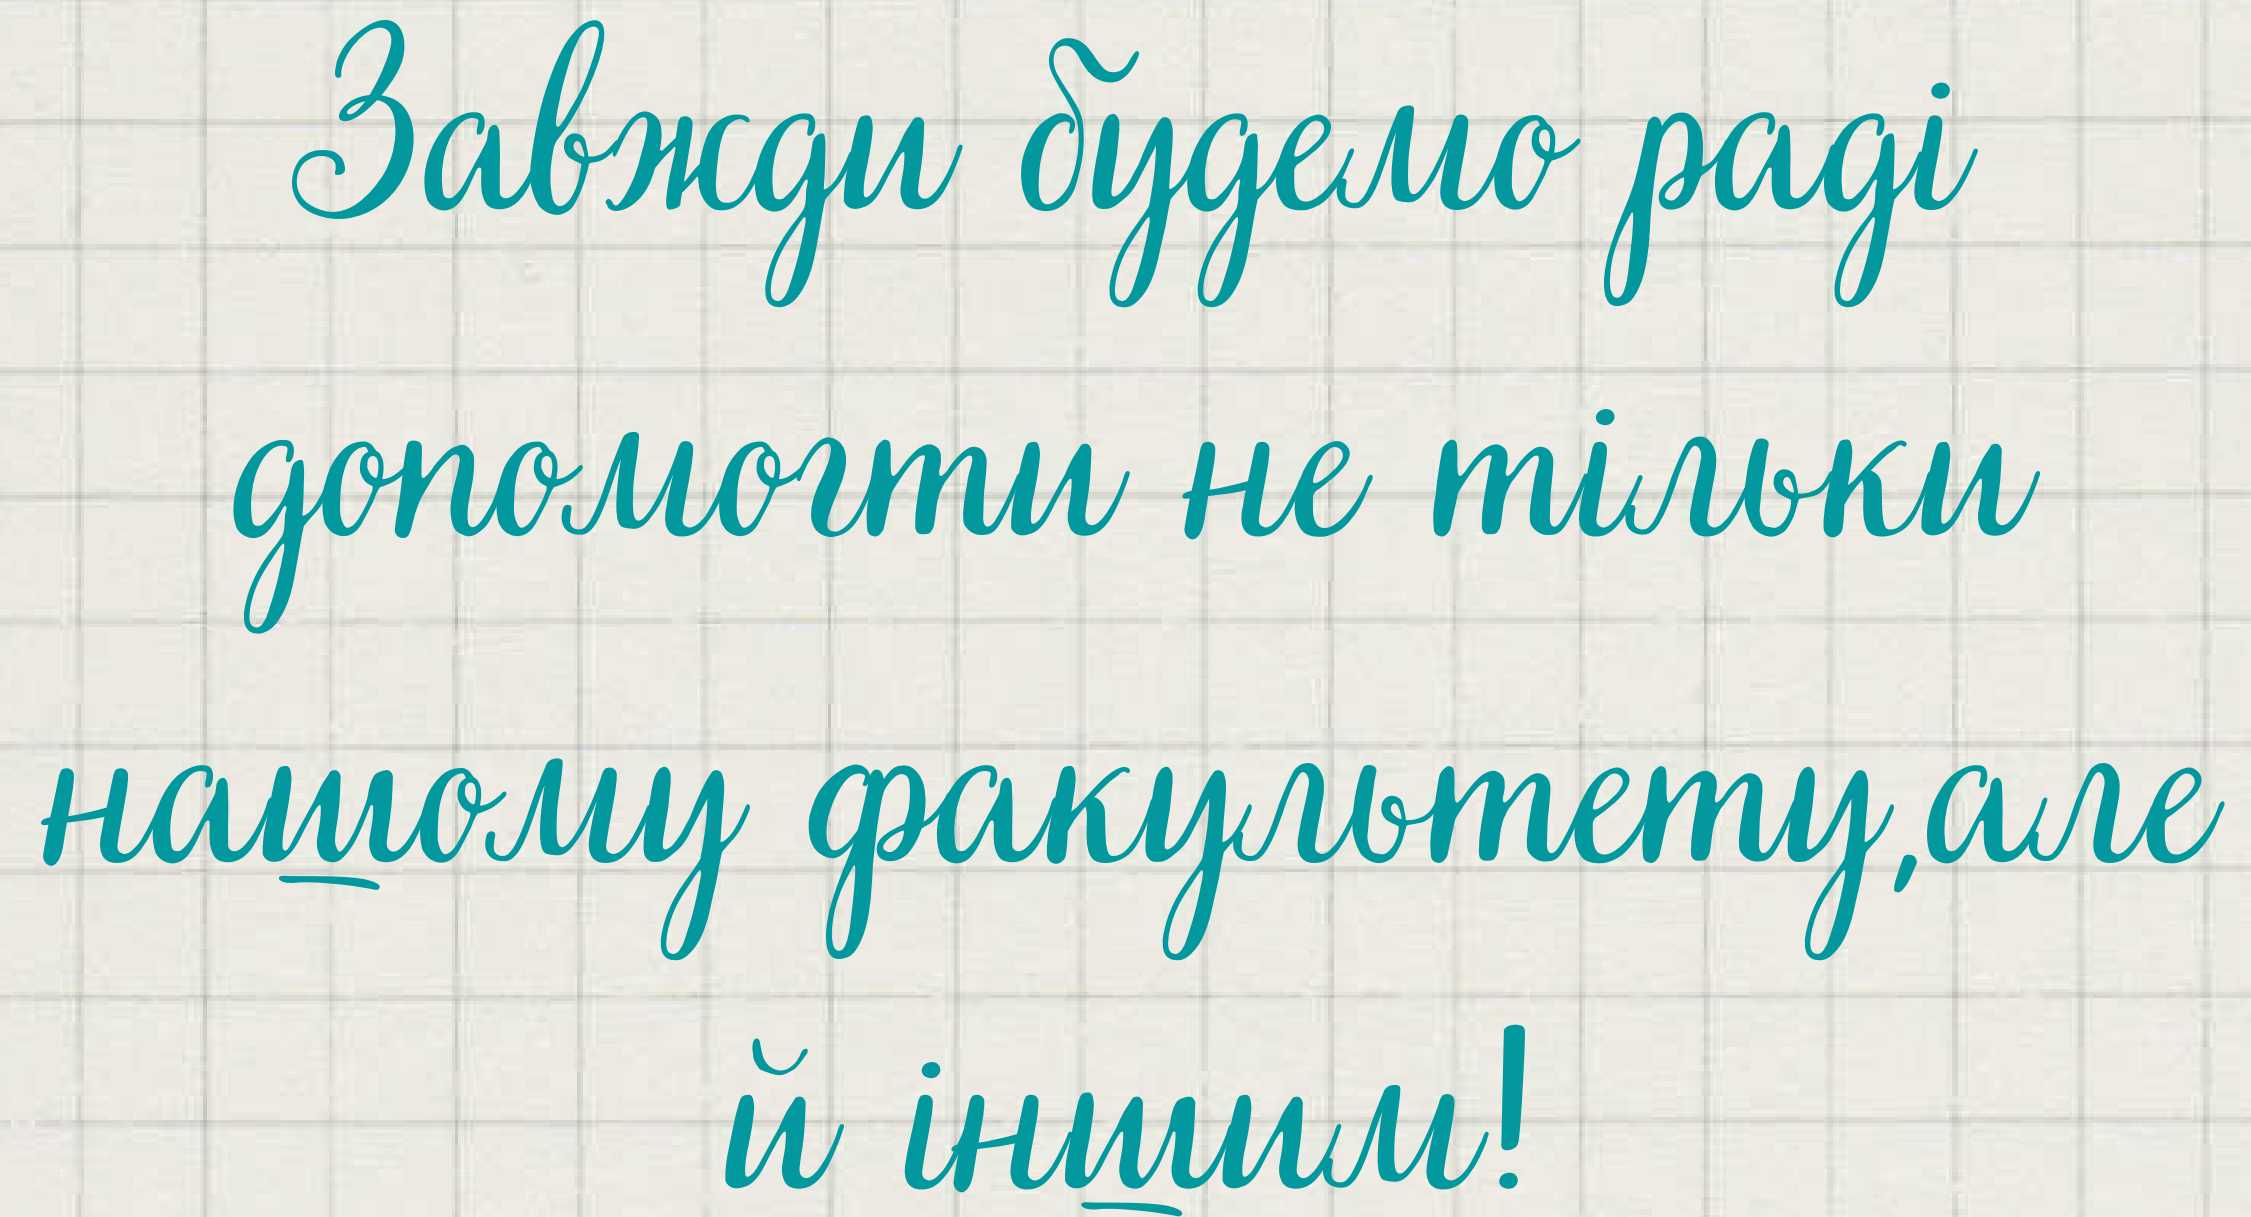 Завжди будемо раді
допомогти не тільки
нашому факультету,але
й іншим!